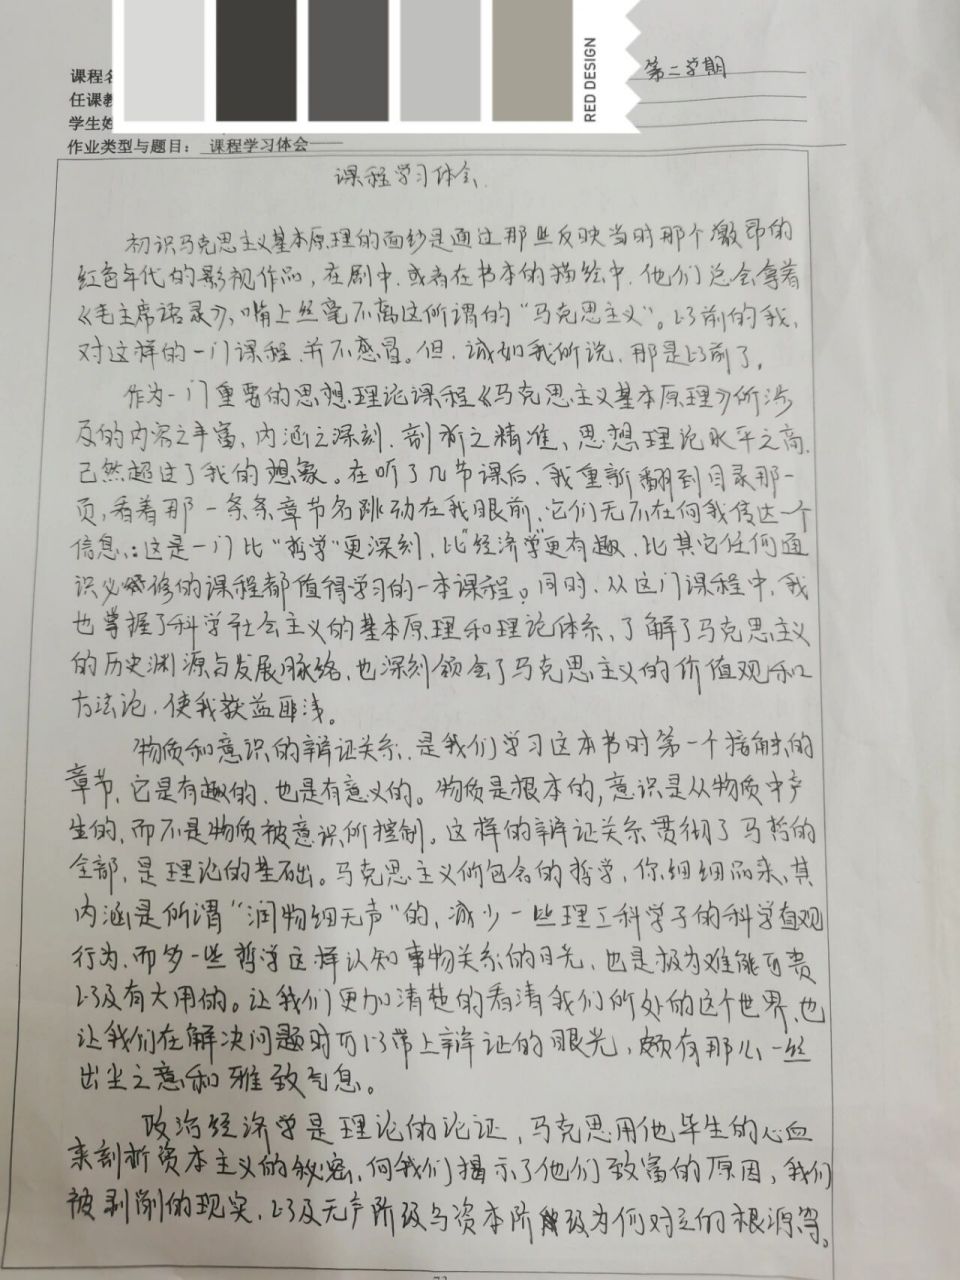 RED DESIGN
课程名
第二学期
任课教
学生姓
作业类型与题目：课程学习体会——
课程学习体会.
初识马克思主义基本原理的面纱是通过那些反映当时那个激昂的
红色年代的影视作品，在剧中.或者在书本的描绘中.他们总会拿着
《毛主席语录》，嘴上丝毫不离这所谓的“马克思主义”。以前的我，
对这样的一门课程.并不感冒。但.诚如我所说.那是以前了.
作为一门重要的思想理论课程《马克思主义基本原理》所涉
及的内容之丰富、内涵之深刻.剖析之精准、思想理论水平之高.
已然超过了我的想象。在听了几节课后、我重新翻到目录那一
页，看着那一条条章节名跳动在我眼前、它们无不在向我传达一个
信息：这是一门比“哲学”更深刻，比“经济学”更有趣、比其它任何通
识必修的课程都值得学习的一本课程。同时.从这门课程中，我
也掌握了科学社会主义的基本原理和理论体系、了解了马克思主义
的历史渊源与发展脉络.也深刻领会了马克思主义的价值观和
方法论.使我获益匪浅。
物质和意识的辩证关系.是我们学习这本书时第一个接触的
章节.它是有趣的.也是有意义的。物质是根本的，意识是从物质中产
生的.而不是物质被意识所控制。这样的辩证关系贯彻了马哲的
全部，是理论的基础。马克思主义所包含的哲学，你细细品来、其
内涵是所谓“润物细无声”的，减少一些理工科学子的科学直观
行为.而多一些哲学这样认知事物关系的目光、也是极为难能可贵
以及有大用的。让我们更加清楚的看清我们所处的这个世界、也
让我们在解决问题时可以带上辩证的眼光，颇有那么一丝
出尘之意和雅致气息。
政治经济学是理论的论证，马克思用他毕生的心血
来剖析资本主义的秘密.向我们揭示了他们致富的原因，我们
被剥削的现实.以及无产阶级与资本阶级为何对立的根源等。